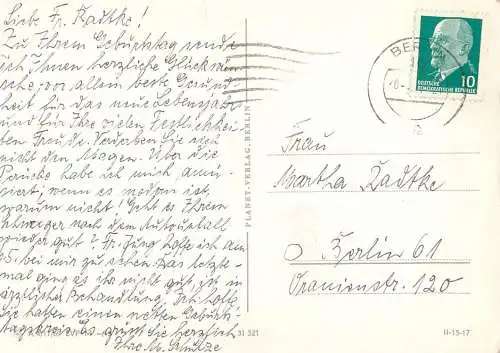 Liebe Fr. Radtke!
Zu Ihrem Geburtstag sende
ich Ihnen herzliche Glückwün-
sche vor allem beste Gesund-
heit für das neue Lebensjahr
und für Ihre vielen Festlichkei-
ten Freude. Verderben Sie sich
nicht den Magen. Über die
Perücke habe ich mich amü-
siert, wenn es modern ist,
warum nicht! Geht es Ihrem
Schwager nach dem Autounfall
wieder gut? Fr. Jung hoffe ich am
15. bei mir zu sehen. Das letzte-
mal ging es ihr nicht gut, ist in
ärztlicher Behandlung. Ich hoffe
Sie haben einen netten Geburts-
tagskreis. Es grüßt Sie herzlich
Ihre M. Schulze
PLANET-VERLAG, BERLIN
31 321
BER
10
DEUTSCHE
DEMOKRATISCHE REPUBLIK
Frau
Martha Radtke
Berlin 61
Oranienstr. 120
II-15-17